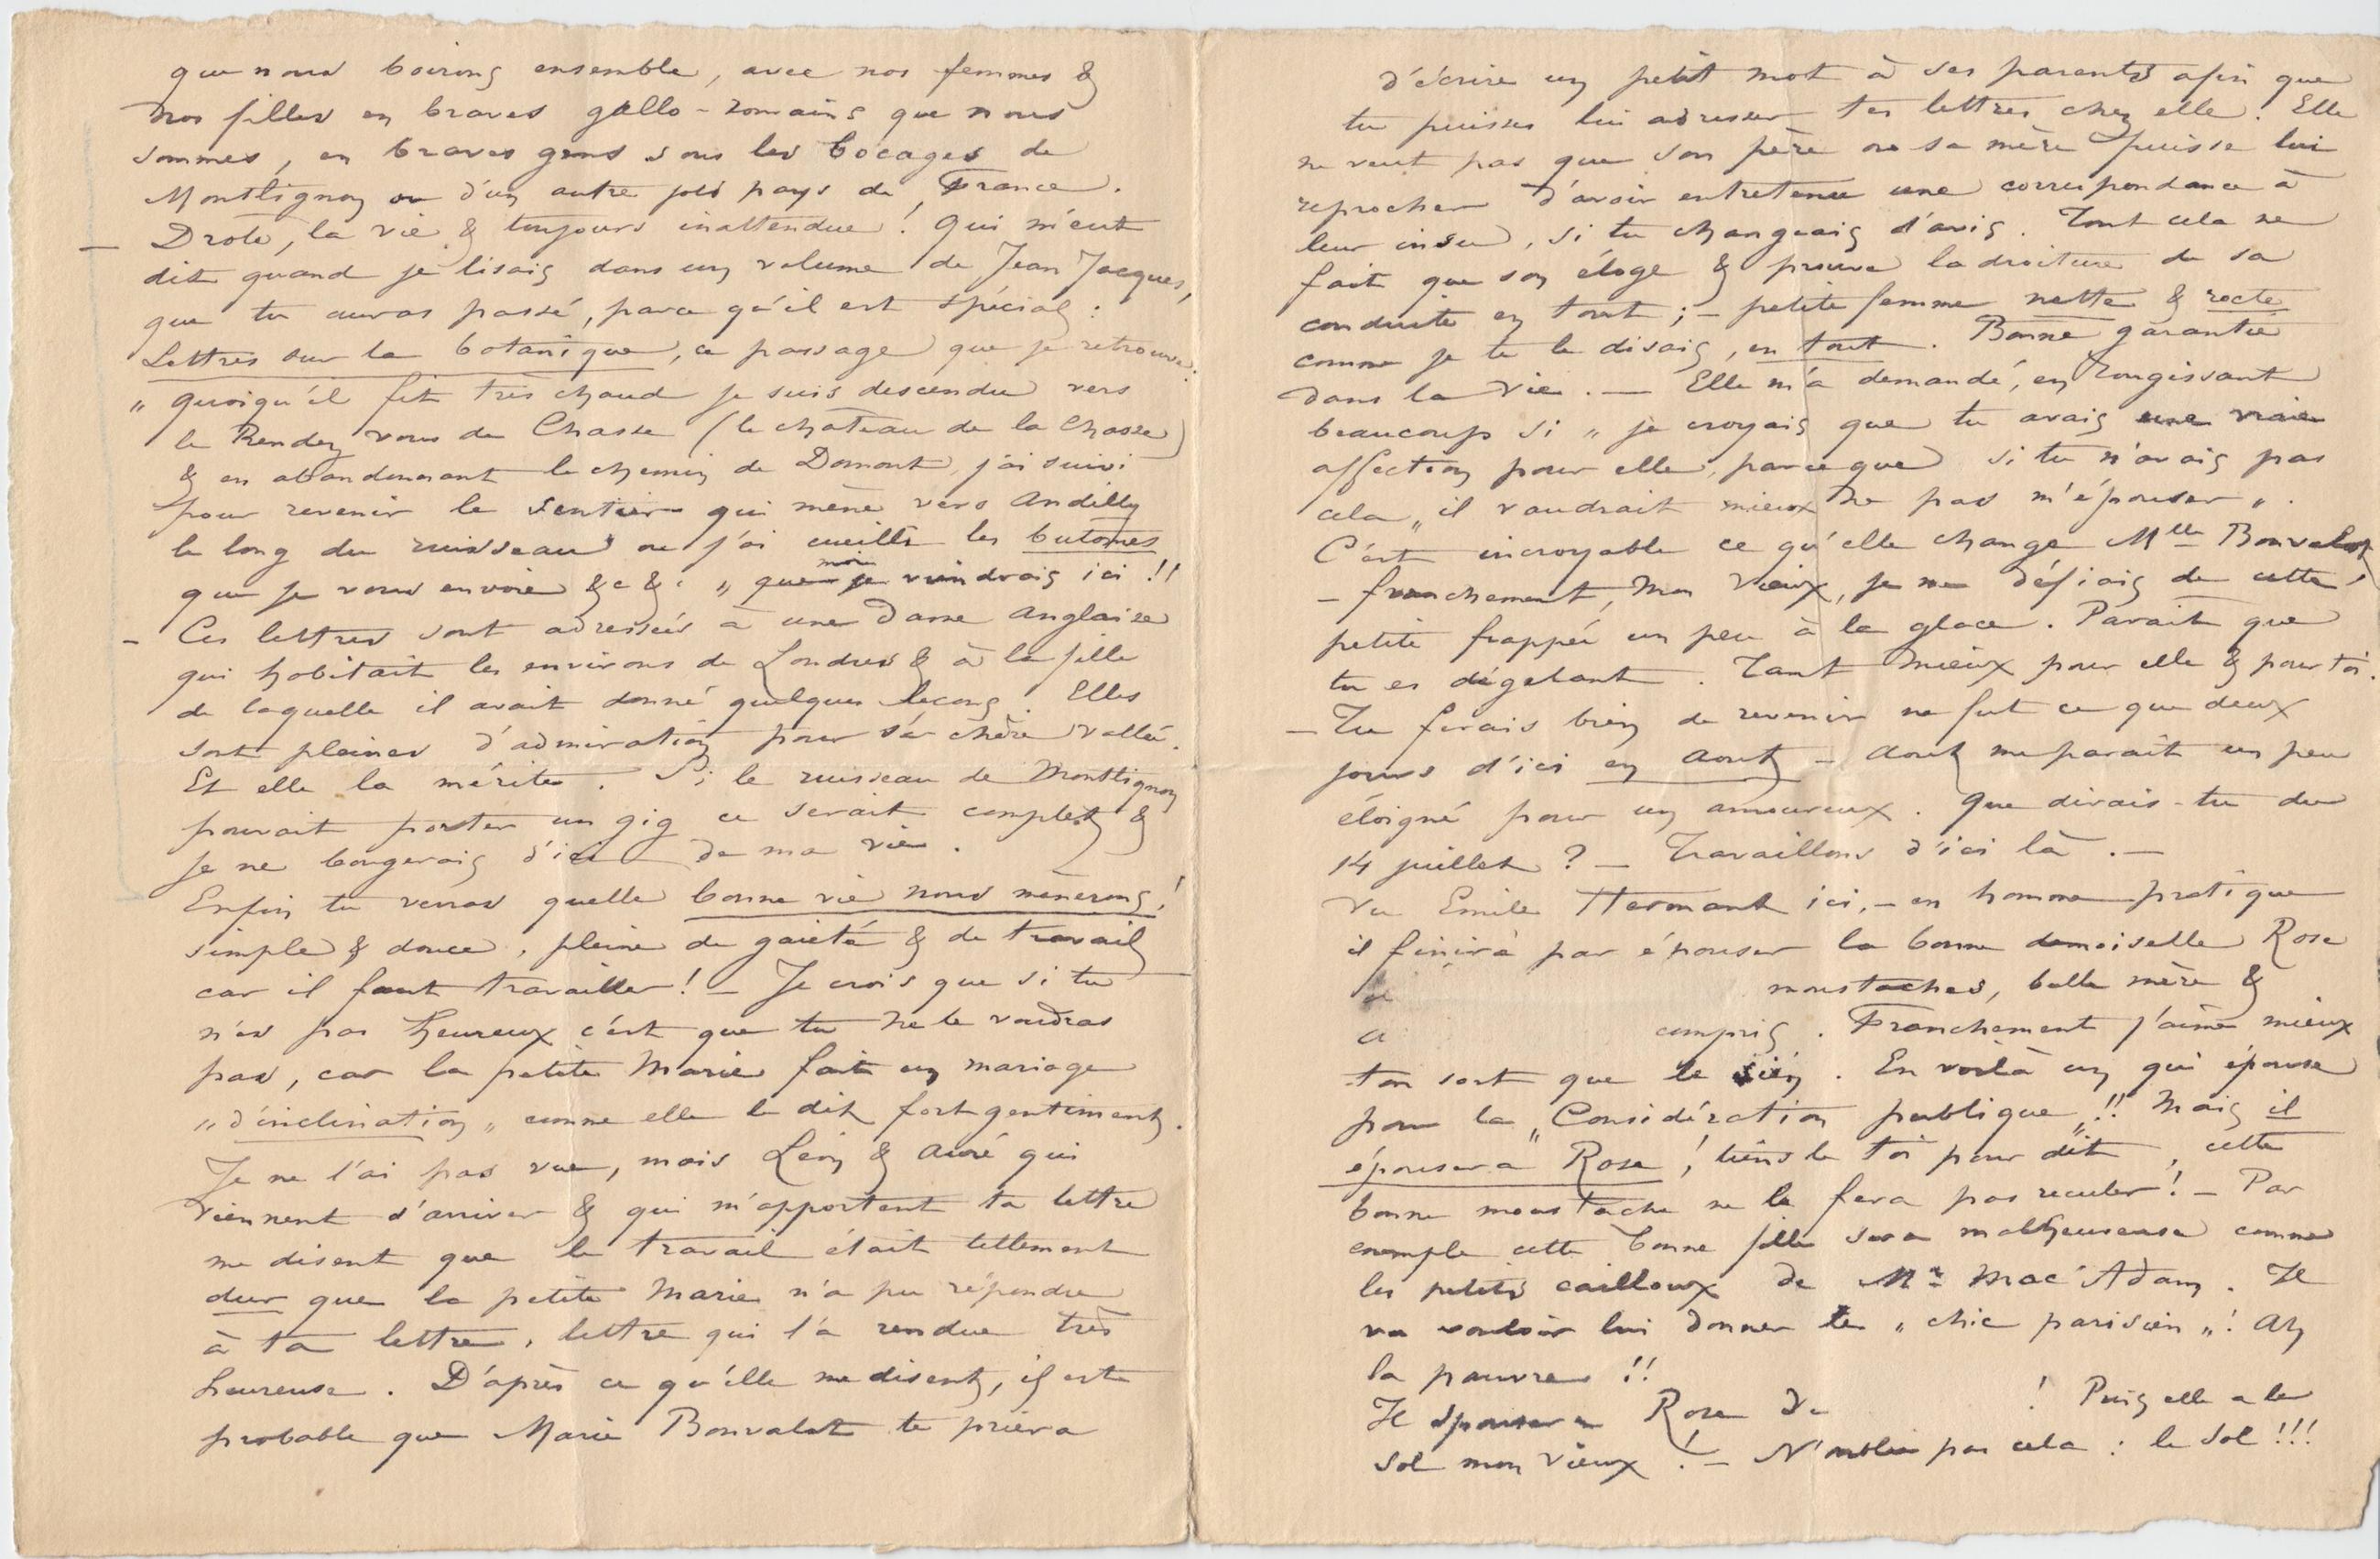 que nous boirons ensemble, avec nos femmes &
nos filles en braves gallo-romains que nous
sommes, en braves gens sous les bocages de
Montlignon ou d'un autre joli pays de France.
— Drole, la vie & toujours inattendue! Qui m'eut
dit quand je lisais dans un volume de Jean Jacques,
que tu auras passé, parce qu'il est spécial :
Lettres sur la botanique, ce passage que je retrouve :
" Quoiqu'il fit très chaud je suis descendu vers
le Rendez vous de Chasse (le chateau de la Chasse)
& en abandonnant le chemin de Domont, j'ai suivi
pour revenir le sentier qui mène vers Andilly
le long du ruisseau ou j'ai cueilli les butomes
que je vous envoie &c &c " que moi je viendrais ici !!
— Ces lettres sont adressées à une dame anglaise
qui habitait les environs de Londres & à la fille
de laquelle il avait donné quelques leçons. Elles
sont pleines d'admiration pour sa chère vallée.
Et elle la mérite. Si le ruisseau de Montlignon
pouvait porter un gig ce serait complet &
je ne bougerais d'ici de ma vie.
Enfin tu verras quelle bonne vie nous mènerons !
simple & douce, pleine de gaieté & de travail
car il faut travailler! — Je crois que si tu
n'es pas heureux c'est que tu ne le voudras
pas, car la petite Marie fait un mariage
" d'inclination " comme elle le dit fort gentiment.
Je ne l'ai pas vue, mais Léon & Aimé qui
viennent d'arriver & qui m'apportent ta lettre
me disent que le travail était tellement
dur que la petite Marie n'a pu répondre
à ta lettre, lettre qui l'a rendue très
heureuse. D'après ce qu'elle me disent, il est
probable que Marie Bonvalet te priera
d'écrire un petit mot à ses parents afin que
tu puisses lui adresser tes lettres chez elle. Elle
ne veut pas que son père ou sa mère puisse lui
reprocher d'avoir entretenu une correspondance à
leur insu, si tu changeais d'avis. Tout cela ne
fait que son éloge & prouve la droiture de sa
conduite en tout ; — petite femme nette & recte
comme je te le disais, en tout. Bonne garantie
dans la vie. — Elle m'a demandé, en rougissant
beaucoup si " je croyais que tu avais une vraie
affection pour elle, parceque si tu n'avais pas
cela, il vaudrait mieux ne pas m'épouser ".
C'est incroyable ce qu'elle change Mlle Bonvalet,
— franchement, mon vieux, je me défiais de cette
petite frappée un peu à la glace. Parait que
tu es dégelant. Tant mieux pour elle & pour toi.
— Tu ferais bien de revenir ne fut ce que deux
jours d'ici en Aout — Aout me parait un peu
éloigné pour un amoureux. Que dirais-tu du
14 juillet ? — Travaillons d'ici là. —
Vu Emile Hermant ici, — en homme pratique
il finira par épouser la bonne demoiselle Rose
de moustaches, belle mère &
a compris. Franchement j'aime mieux
ton sort que le sien. En voilà un qui épouse
pour la " Considération publique " !! Mais il
épousera Rose ! tiens le toi pour dit, cette
bonne moustache ne le fera pas reculer ! — Par
exemple cette bonne fille sera malheureuse comme
les petits cailloux de Mr Mac' Adam. Il
va vouloir lui donner le " chic parisien " ! Ah
la pauvre !!
Il épousera Rose de ! Puis elle a le
sol mon vieux ! — N'oublie pas cela : le sol !!!